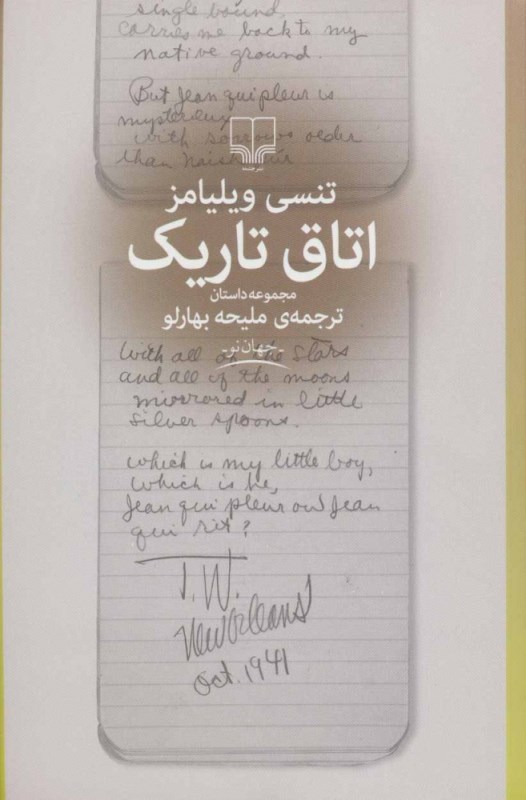 single bound,
carries me back to my
native ground.
But Jean qui pleur is
mysterious
with sorrows older
than
نشر چشمه
تنسی ویلیامز
اتاق تاریک
مجموعه داستان
ترجمه‌ی ملیحه بهارلو
جهان نو
With all of the stars
and all of the moons
mirrored in little
silver spoons.
which is my little boy,
which is he,
Jean qui pleur ou Jean
qui rit?
T.W.
New Orleans
Oct. 1941